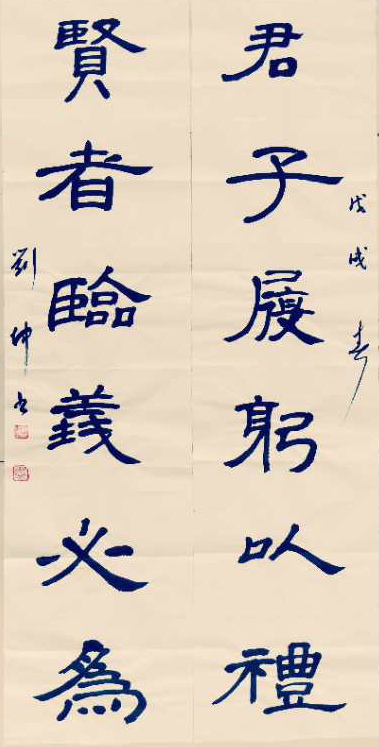 戊戌春
君子履躬以禮
賢者臨義必為
劉坤书